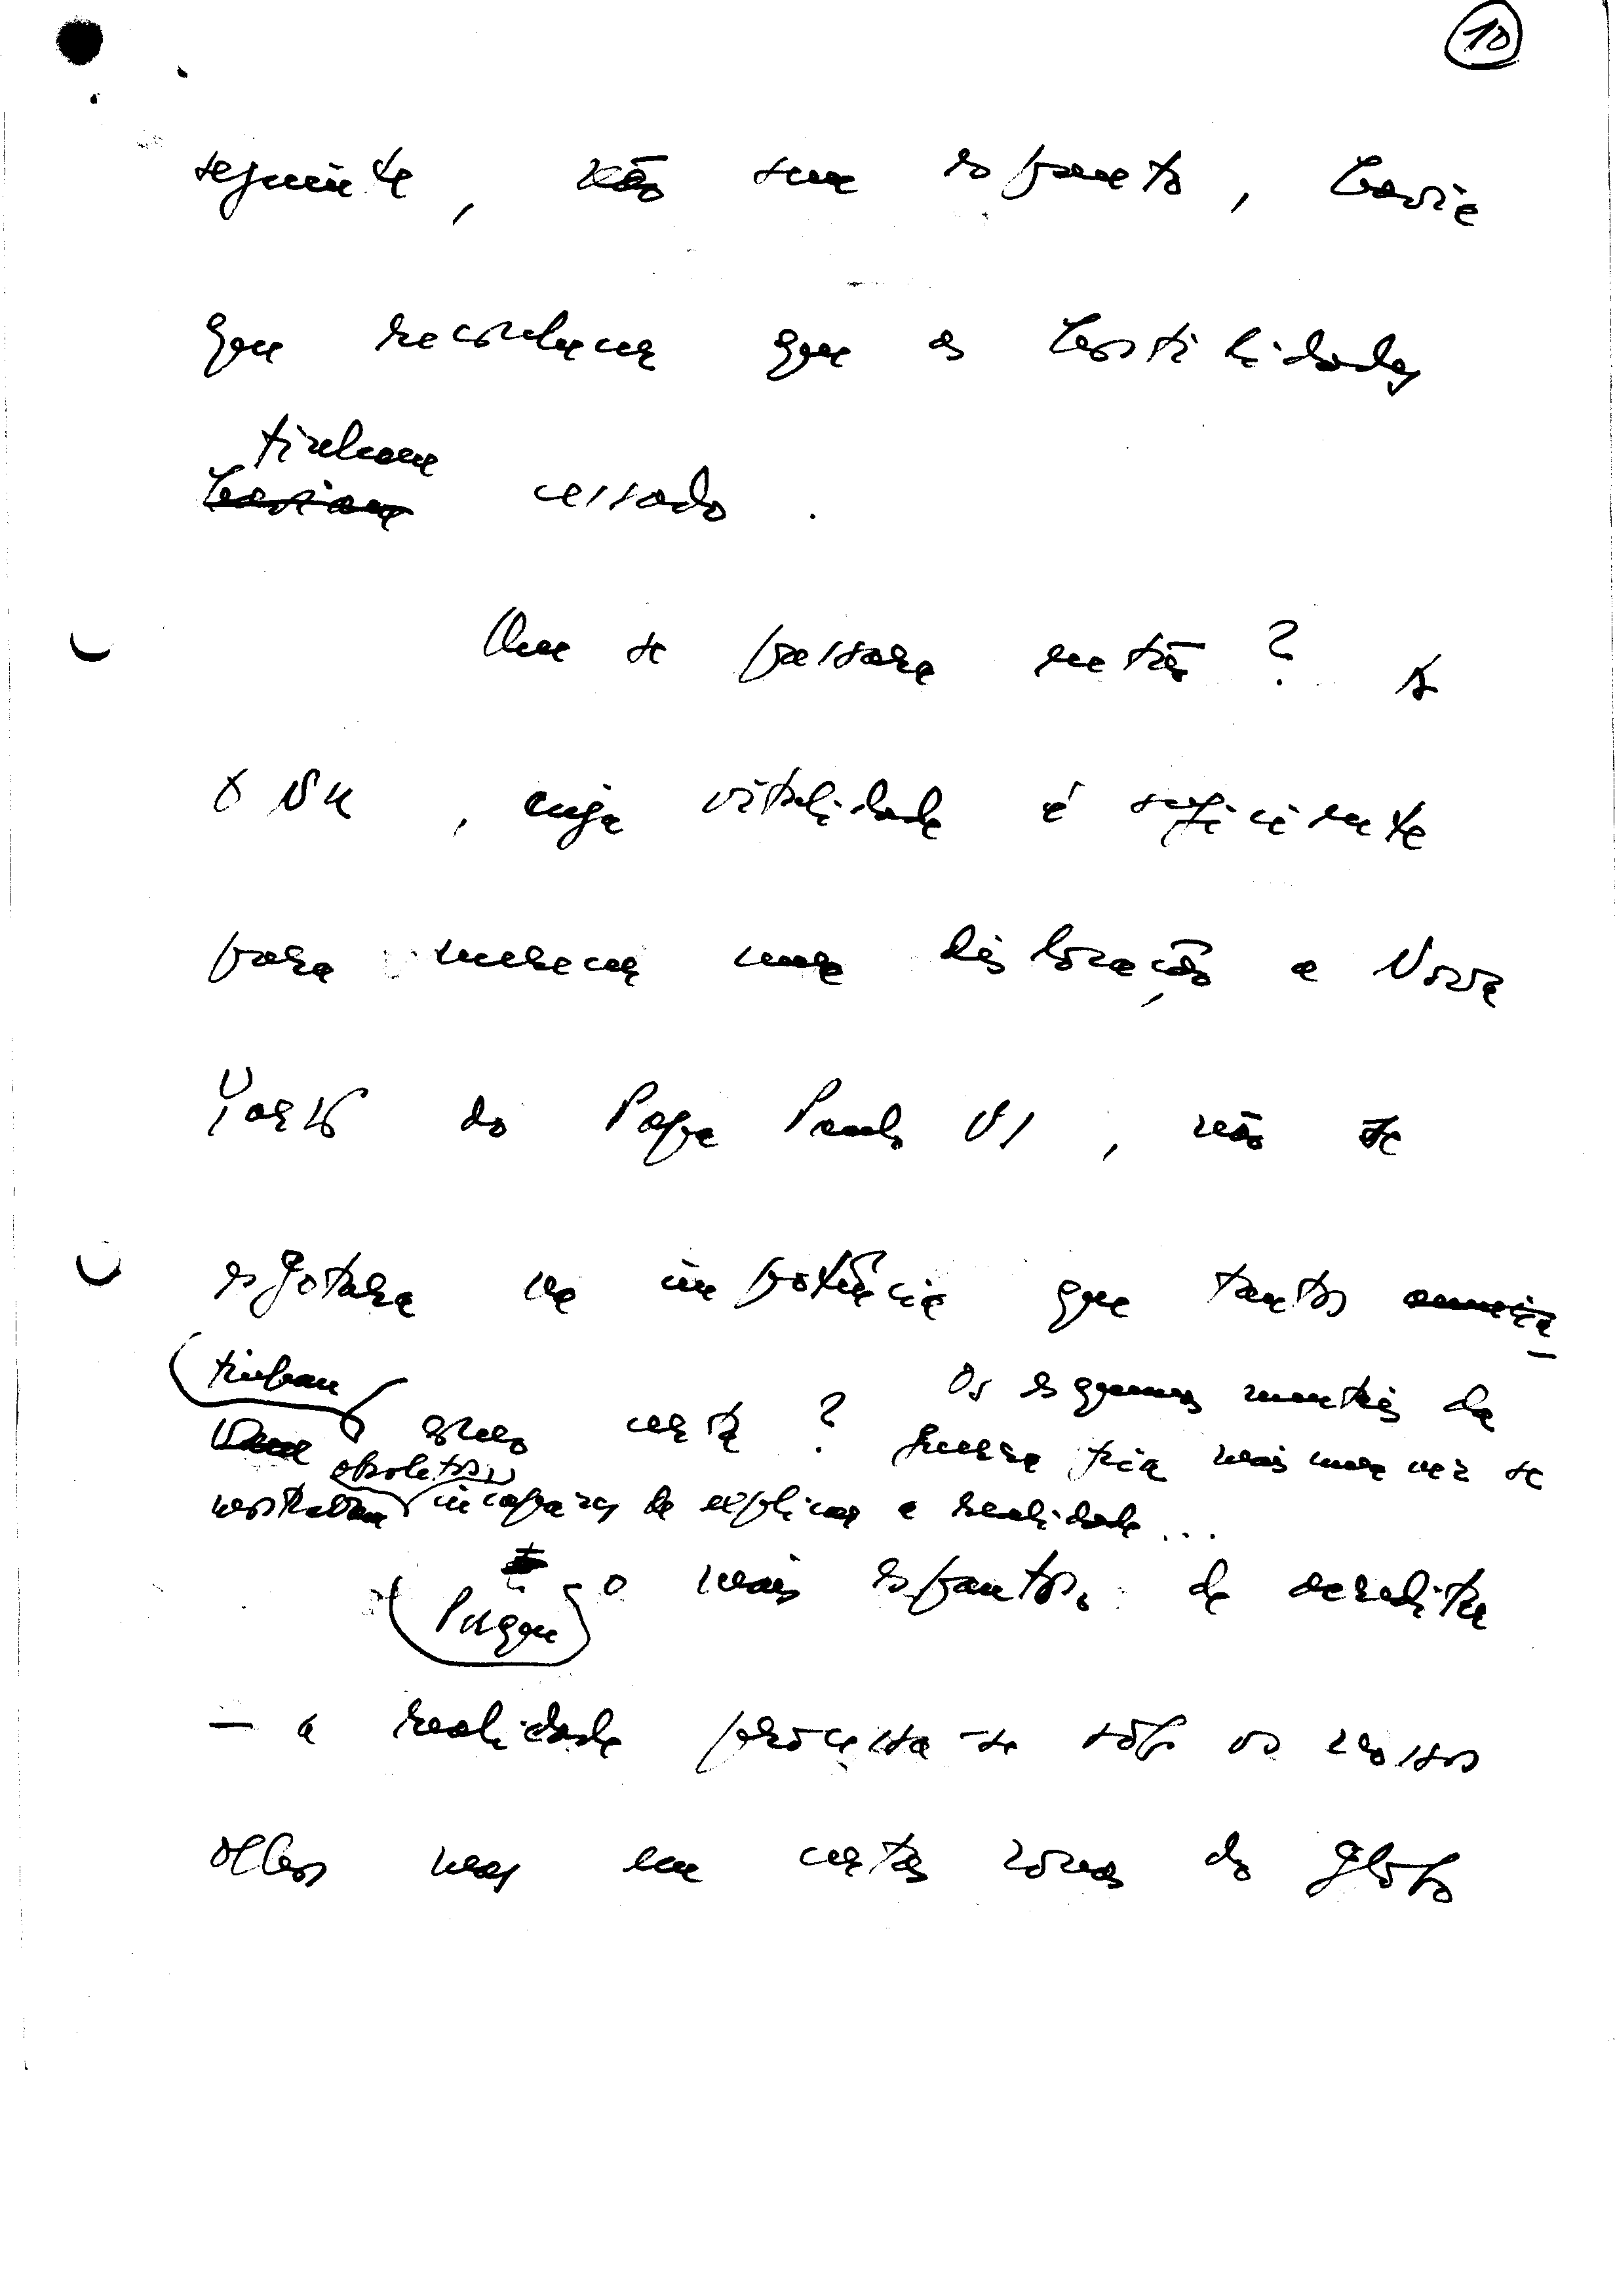 10
seguinte, não sem espanto, havia
que reconhecer que as hostilidades
tinham
haviam cessado.
Que se passara então? A
ONU, cuja vitalidade é suficiente
para merecer uma deslocação a Nova
York do Papa Paulo VI, não se
esgotara na impotência que tantos
tinham
como certa? Os esquemas mentais da
guerra fria mais uma vez se
obsoletos,
mostravam incapazes de explicar a realidade...
Porque o mais espantoso de acreditar
— a realidade processa-se sob os nossos
olhos mas em certas zonas do globo